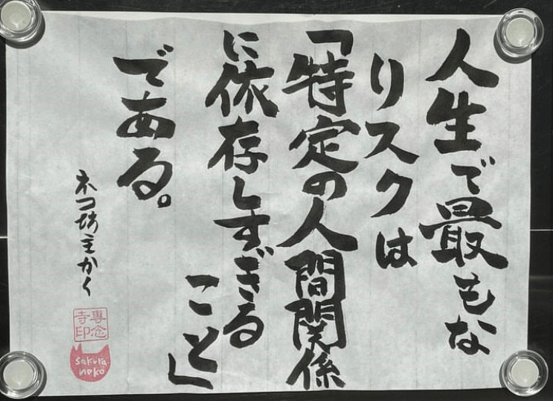 人生で最もな
リスクは
「特定の人間関係
に依存しすぎる
こと」
である。
ネコ坊主かく
専念
寺印
sakura
neko